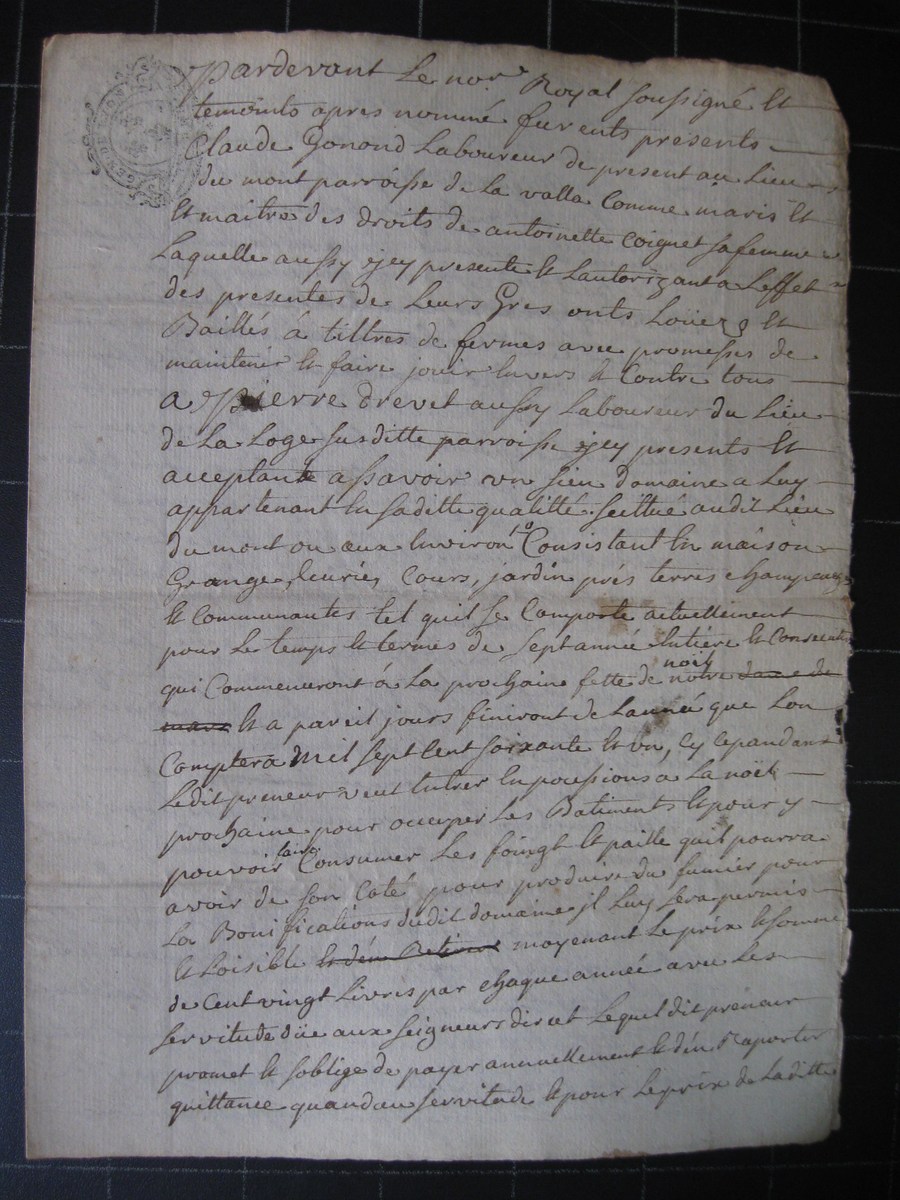 Pardevant le nore Royal soussigné et
temoints apres nommé furents presents
Claude Gonond Laboureur de present au Lieu
du mont parroisse de la valla Comme maris et
et maitres des droits de antoinette Coignet sa femme
Laquelle aussy yey presente et Lautorizant a Leffet
des presentes de Leurs Gres onts Loüez et
Baillés à tiltres de fermes avec promesses de
maintenir et faire jouir Envers et Contre tous
a Pierre drevet aussy Laboureur du Lieu
de La Loge susditte parroisse yey presents et
acceptant assavoir un sien domaine a Luy
appartenant En sa ditte qualitté scittué audit Lieu
du mont ou aux Environ Consistant En maison
Grange, Ecurie, Cours, jardin prés terres
et Communantes tel quil se Comporte actuellement
pour le temps et termes de sept année Entière et Consecuti
qui Commenceront à La prochaine fette de notre noël
et a pareil jours finiront de Lannéé que Lon
Comptera Mil sept Cent soixante et un, Cy Cepandant
Ledit preneur veut Entrer En pocessions a La noël
prochaine pour occuper Les Batiments et pour y
pouvoir faire Consumer Les foingt et paille quil pourra
avoir de son Coté pour produire du fumier pour
La Bonifications dudit domaine jl Luy sera permis
et Loisible moyenant Le prix et somme
de Cent vingt Livres par chaque année avec Les
servitude düe aux seigneurs direct Lequel dit preneur
promet et soblige de payer annuellement et den Raporter
quittance quand au servitude et pour Le prix de Laditte